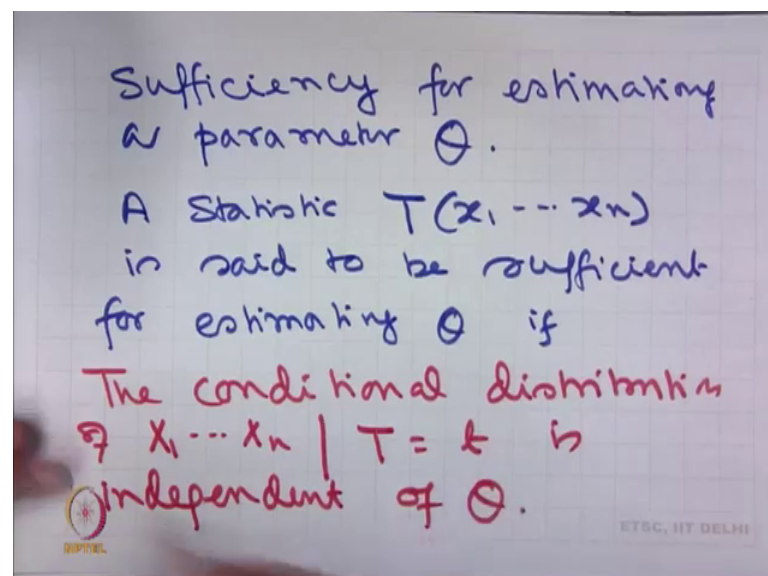 Sufficiency for estimating
a parameter θ.
A Statistic T(x₁ --- xₙ)
is said to be sufficient
for estimating θ if
The conditional distribution
of X₁ --- Xₙ | T = t is
independent of θ.
NPTEL
ETSC, IIT DELHI